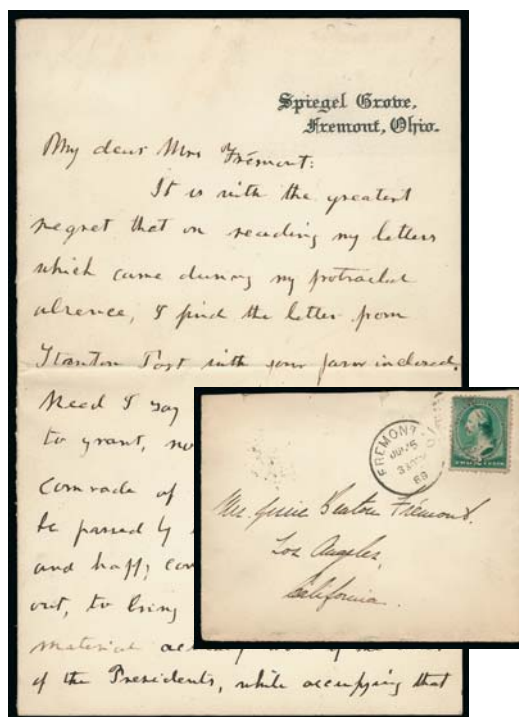 Spiegel Grove,
Fremont, Ohio.
My dear Mrs Frémont:
It is with the greatest
regret that on reading my letters
which came during my protracted
absence, I find the letter from
Stanton Post with your favor inclosed.
Need I say
to grant, no
Comrade of
be passed by
and happy con
out, to bring
material
of the Presidents, while occupying that
FREMONT
O
JUN 5
3
88
TWO CENTS
Mrs. Jessie Benton Frémont.
Los Angeles,
California.